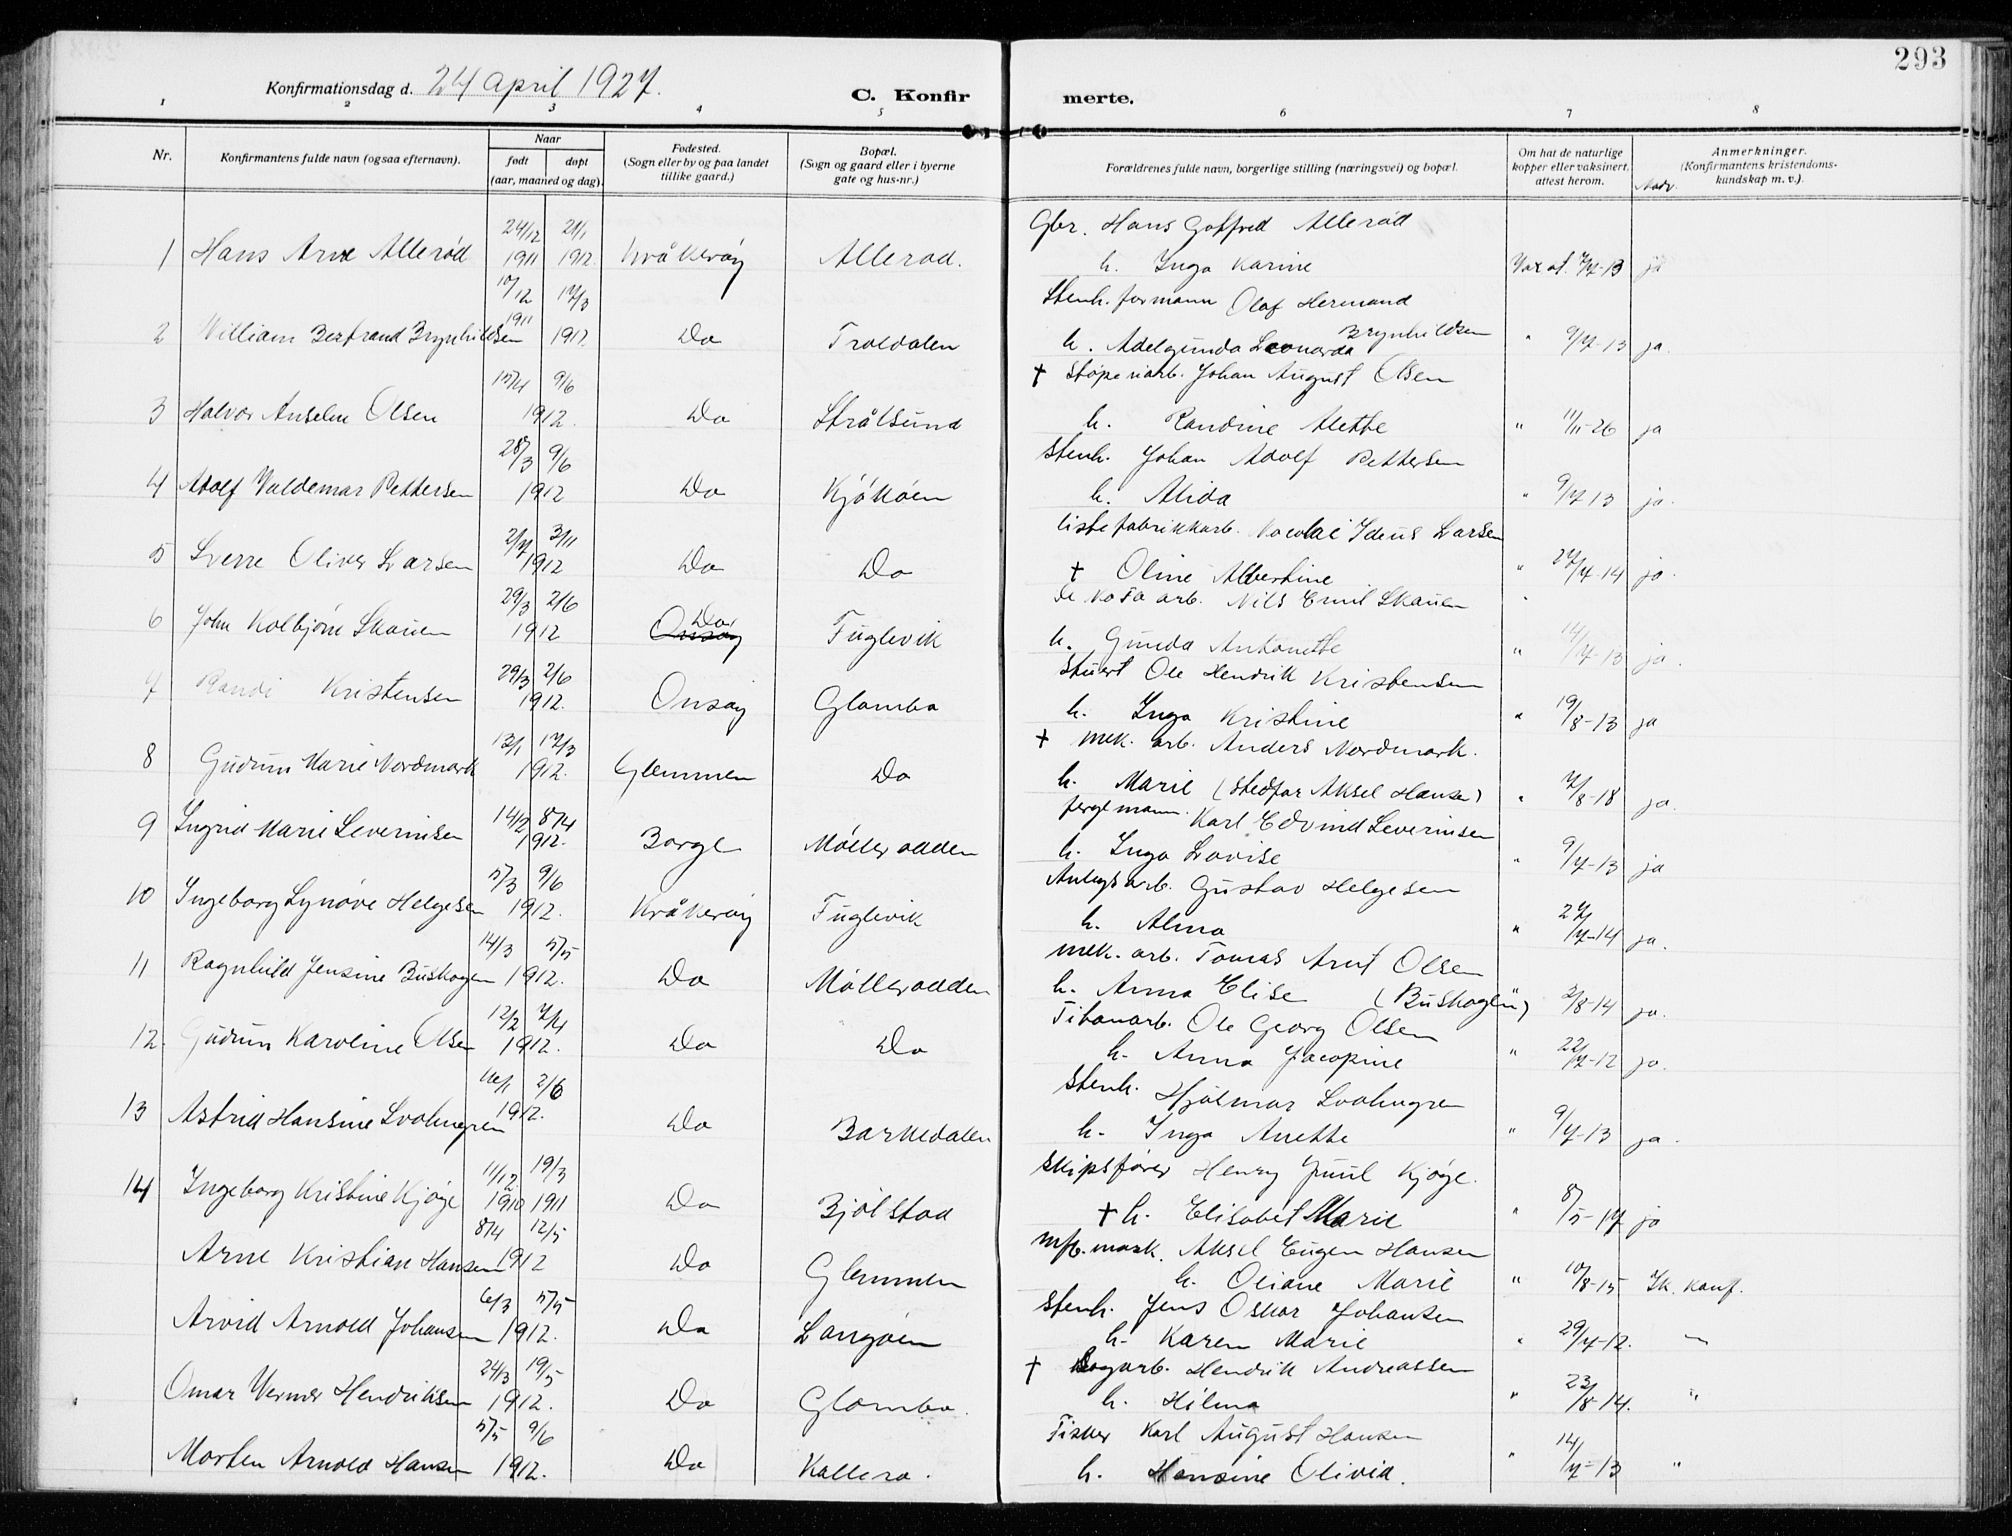 293
Konfirmationsdag d. 24 april 1927.
C. Konfir merte.
1 2 3 4 5 6 7 8
Nr. Konfirmantens fulde navn (ogsaa efternavn). Naar født døpt (aar, maaned og dag). Fødested. (Sogn eller by og paa landet tillike gaard.) Bopæl. (Sogn og gaard eller i byerne gate og hus-nr.) Forældrenes fulde navn, borgerlige stilling (næringsvei) og bopæl. Om hat de naturlige kopper eller vaksinert, attest herom. Anmerkninger. (Konfirmantens kristendomskundskap m. v.).
24/12 21/1 Gbr. Hans Gotfred Allerød
1 Hans Arne Allerød 1911 1912. Kråkerøy Allerød. h. Inga Karine 7/7-13 ja
10/12 17/3 Stenh. formann Olaf Hermand
2 William Bertrand Brynhildsen 1911 1912. Do Troldalen h. Adelgunda Leonarda Brynhildsen " 9/7-13 ja.
15/4 9/6 † Støperiarb. Johan August Olsen
3 Halvor Anselm Olsen 1912. Do Strålsund h. Randine Alette " 11/11-26 ja
28/3 9/6 Stenh. Johan Adolf Pettersen
4 Adolf Valdemar Pettersen 1912 Do Kjøkøen h. Alida " 9/7 13 ja.
2/7 3/11 Listefabrikkarb. Ideus Larsen
5 Sverre Oliver Larsen 1912 Do Do † Oline Albertine " 27/4-14 ja.
29/3 2/6 De No Fa arb. Nils Emil Skauen
6 John Kolbjørn Skauen 1912 Onsøy Do Fuglevik h. Gunda Antonette " 14/7-13 ja.
29/3 2/6 Stuert Ole Hendrik Kristensen
7 Randi Kristensen 1912. Onsøy Glombo h. Inga Kristine " 19/8-13 ja
13/1 17/3 † mek. arb. Anders Nordmark.
8 Gudrun Marie Nordmark 1912. Glemmen Do h. Marie (stedfar Aksel Hansen) " 7/8-18 ja.
14/2 8/4 fergemann. Karl Edvind Severinsen
9 Ingrid Marie Severinsen 1912. Borge Møllerodden h. Inga Lovise " 9/7-13 ja
5/3 9/6 Anlegsarb. Gustav Helgesen
10 Ingeborg Synøve Helgesen 1912. Kråkerøy Fuglevik h. Alma " 27/7-14 ja.
14/3 5/5 mek. arb. Tomas Arnt Olsen
11 Ragnhild Jensine Buskogen 1912. Do Møllerodden h. Anna Elise (Buskogen) " 3/8-14 ja.
12/2 7/4 Titanarb. Ole Georg Olsen
12 Gudrun Karoline Olsen 1912. Do Do h. Anna Jacopine " 22/7-12 ja.
2/6 Stenh. Hjalmar Svohngren
13 Astrid Hansine Svohngren 1912. Do Barkedalen h. Inga Anette " 9/7-13 ja.
11/12 19/3 Skipsfører Henry Juul Kjøge.
14 Ingeborg Kristine Kjøge 1910 1911 Do Bjølstad † h. Elisabet Marie " 8/5-17 ja
8/4 12/5 mask. Aksel Eugen Hansen
Arne Kristian Hansen 1912 Do Glemmen h. Oliane Marie " 10/8-15 Ik. konf.
6/3 5/5 Stenh. Jens Oskar Johansen
Arvid Arnold Johansen 1912. Do Langøen h. Karen Marie " 29/7-12. "
24/3 19/5 † Hendrik Andreassen
Omar Verner Hendriksen 1912. Do Glombo. h. Hilma " 23/8-14. "
5/5 9/6 Fisker Karl August Hansen
Morten Arnold Hansen 1912. Do Kallerø. h. Hansine Olivia. " 14/7-13 "